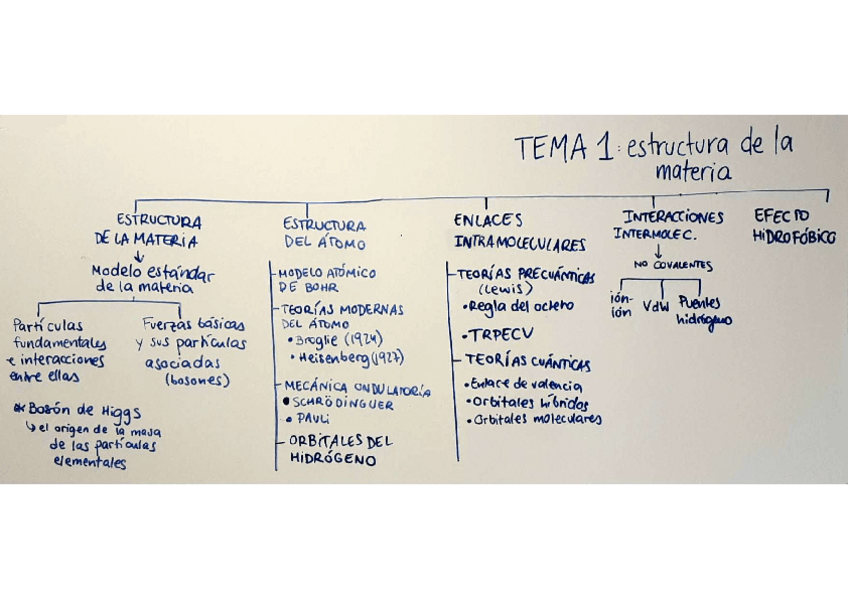 TEMA 1: estructura de la
materia
ESTRUCTURA
DE LA MATERIA
Modelo estándar
de la materia
Partículas
fundamentales
e interacciones
entre ellas
Fuerzas básicas
y sus partículas
asociadas
(bosones)
* Bosón de Higgs
↳ el origen de la masa
de las partículas
elementales
ESTRUCTURA
DEL ÁTOMO
- MODELO ATÓMICO
DE BOHR
- TEORÍAS MODERNAS
DEL ÁTOMO
• Broglie (1924)
• Heisenberg (1927)
- MECÁNICA ONDULATORÍA
• SCHRÖDINGUER
• PAULI
- ORBITALES DEL
HIDRÓGENO
ENLACES
INTRAMOLECULARES
- TEORÍAS PRECUÁNTICAS
(Lewis)
• Regla del octeto
• TRPECV
- TEORÍAS CUÁNTICAS
• Enlace de valencia
• Orbitales híbridos
• Orbitales moleculares
INTERACCIONES
INTERMOLEC.
NO COVALENTES
ión-
ión
VdW
Puentes
hidrógeno
EFECTO
HIDROFÓBICO